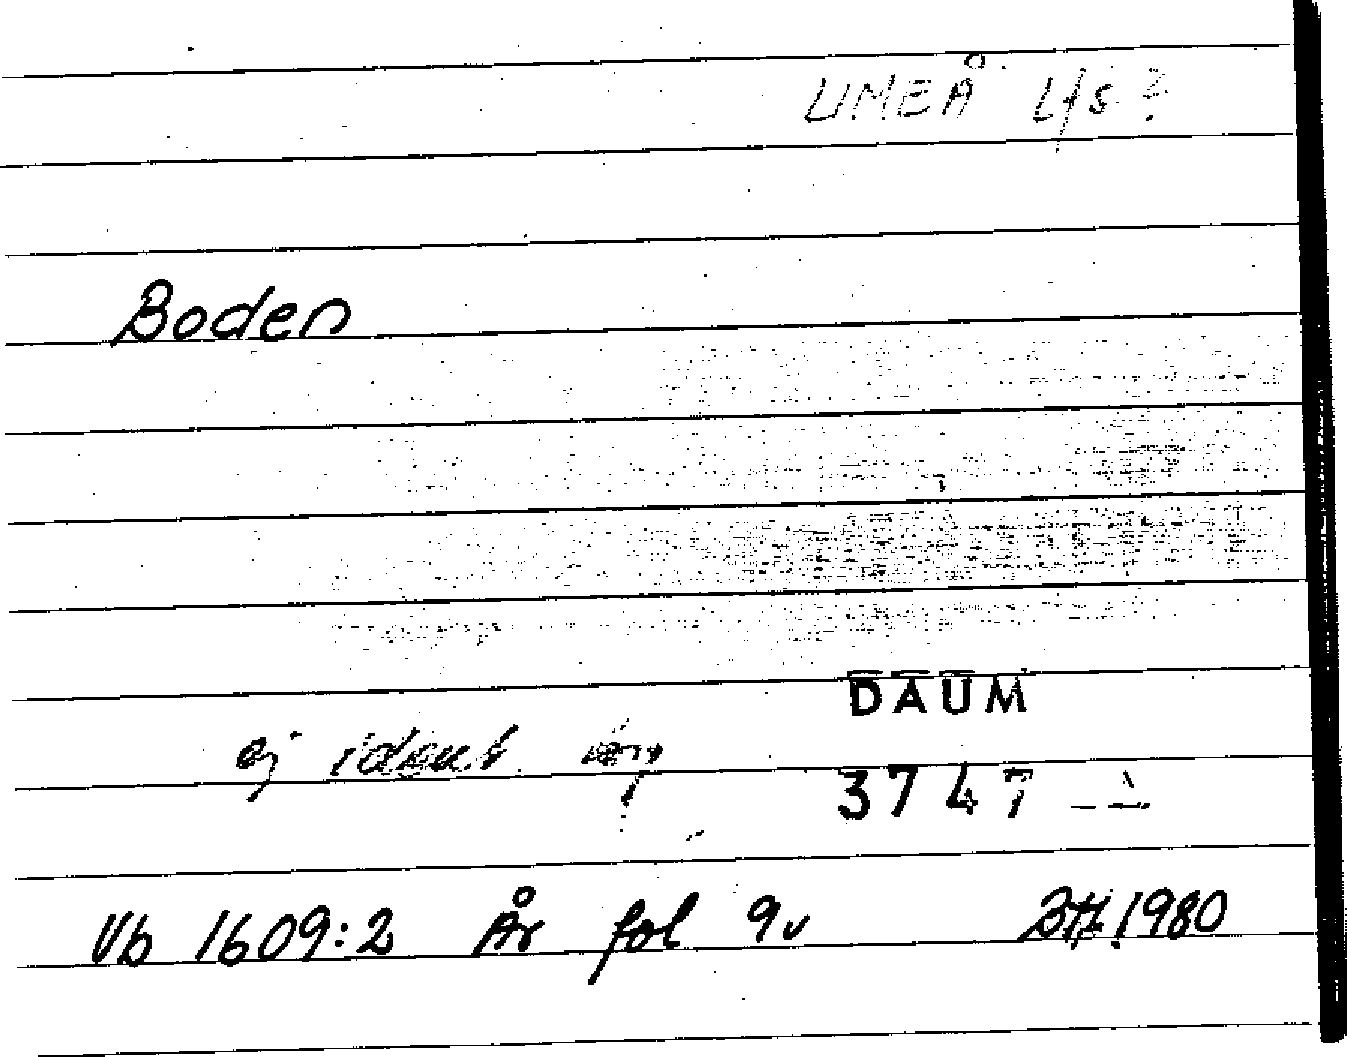 UMEÅ Lfs?
Boden
DAUM
ej ident
3747
Vb 1609:2 År fol 9v BH.1980